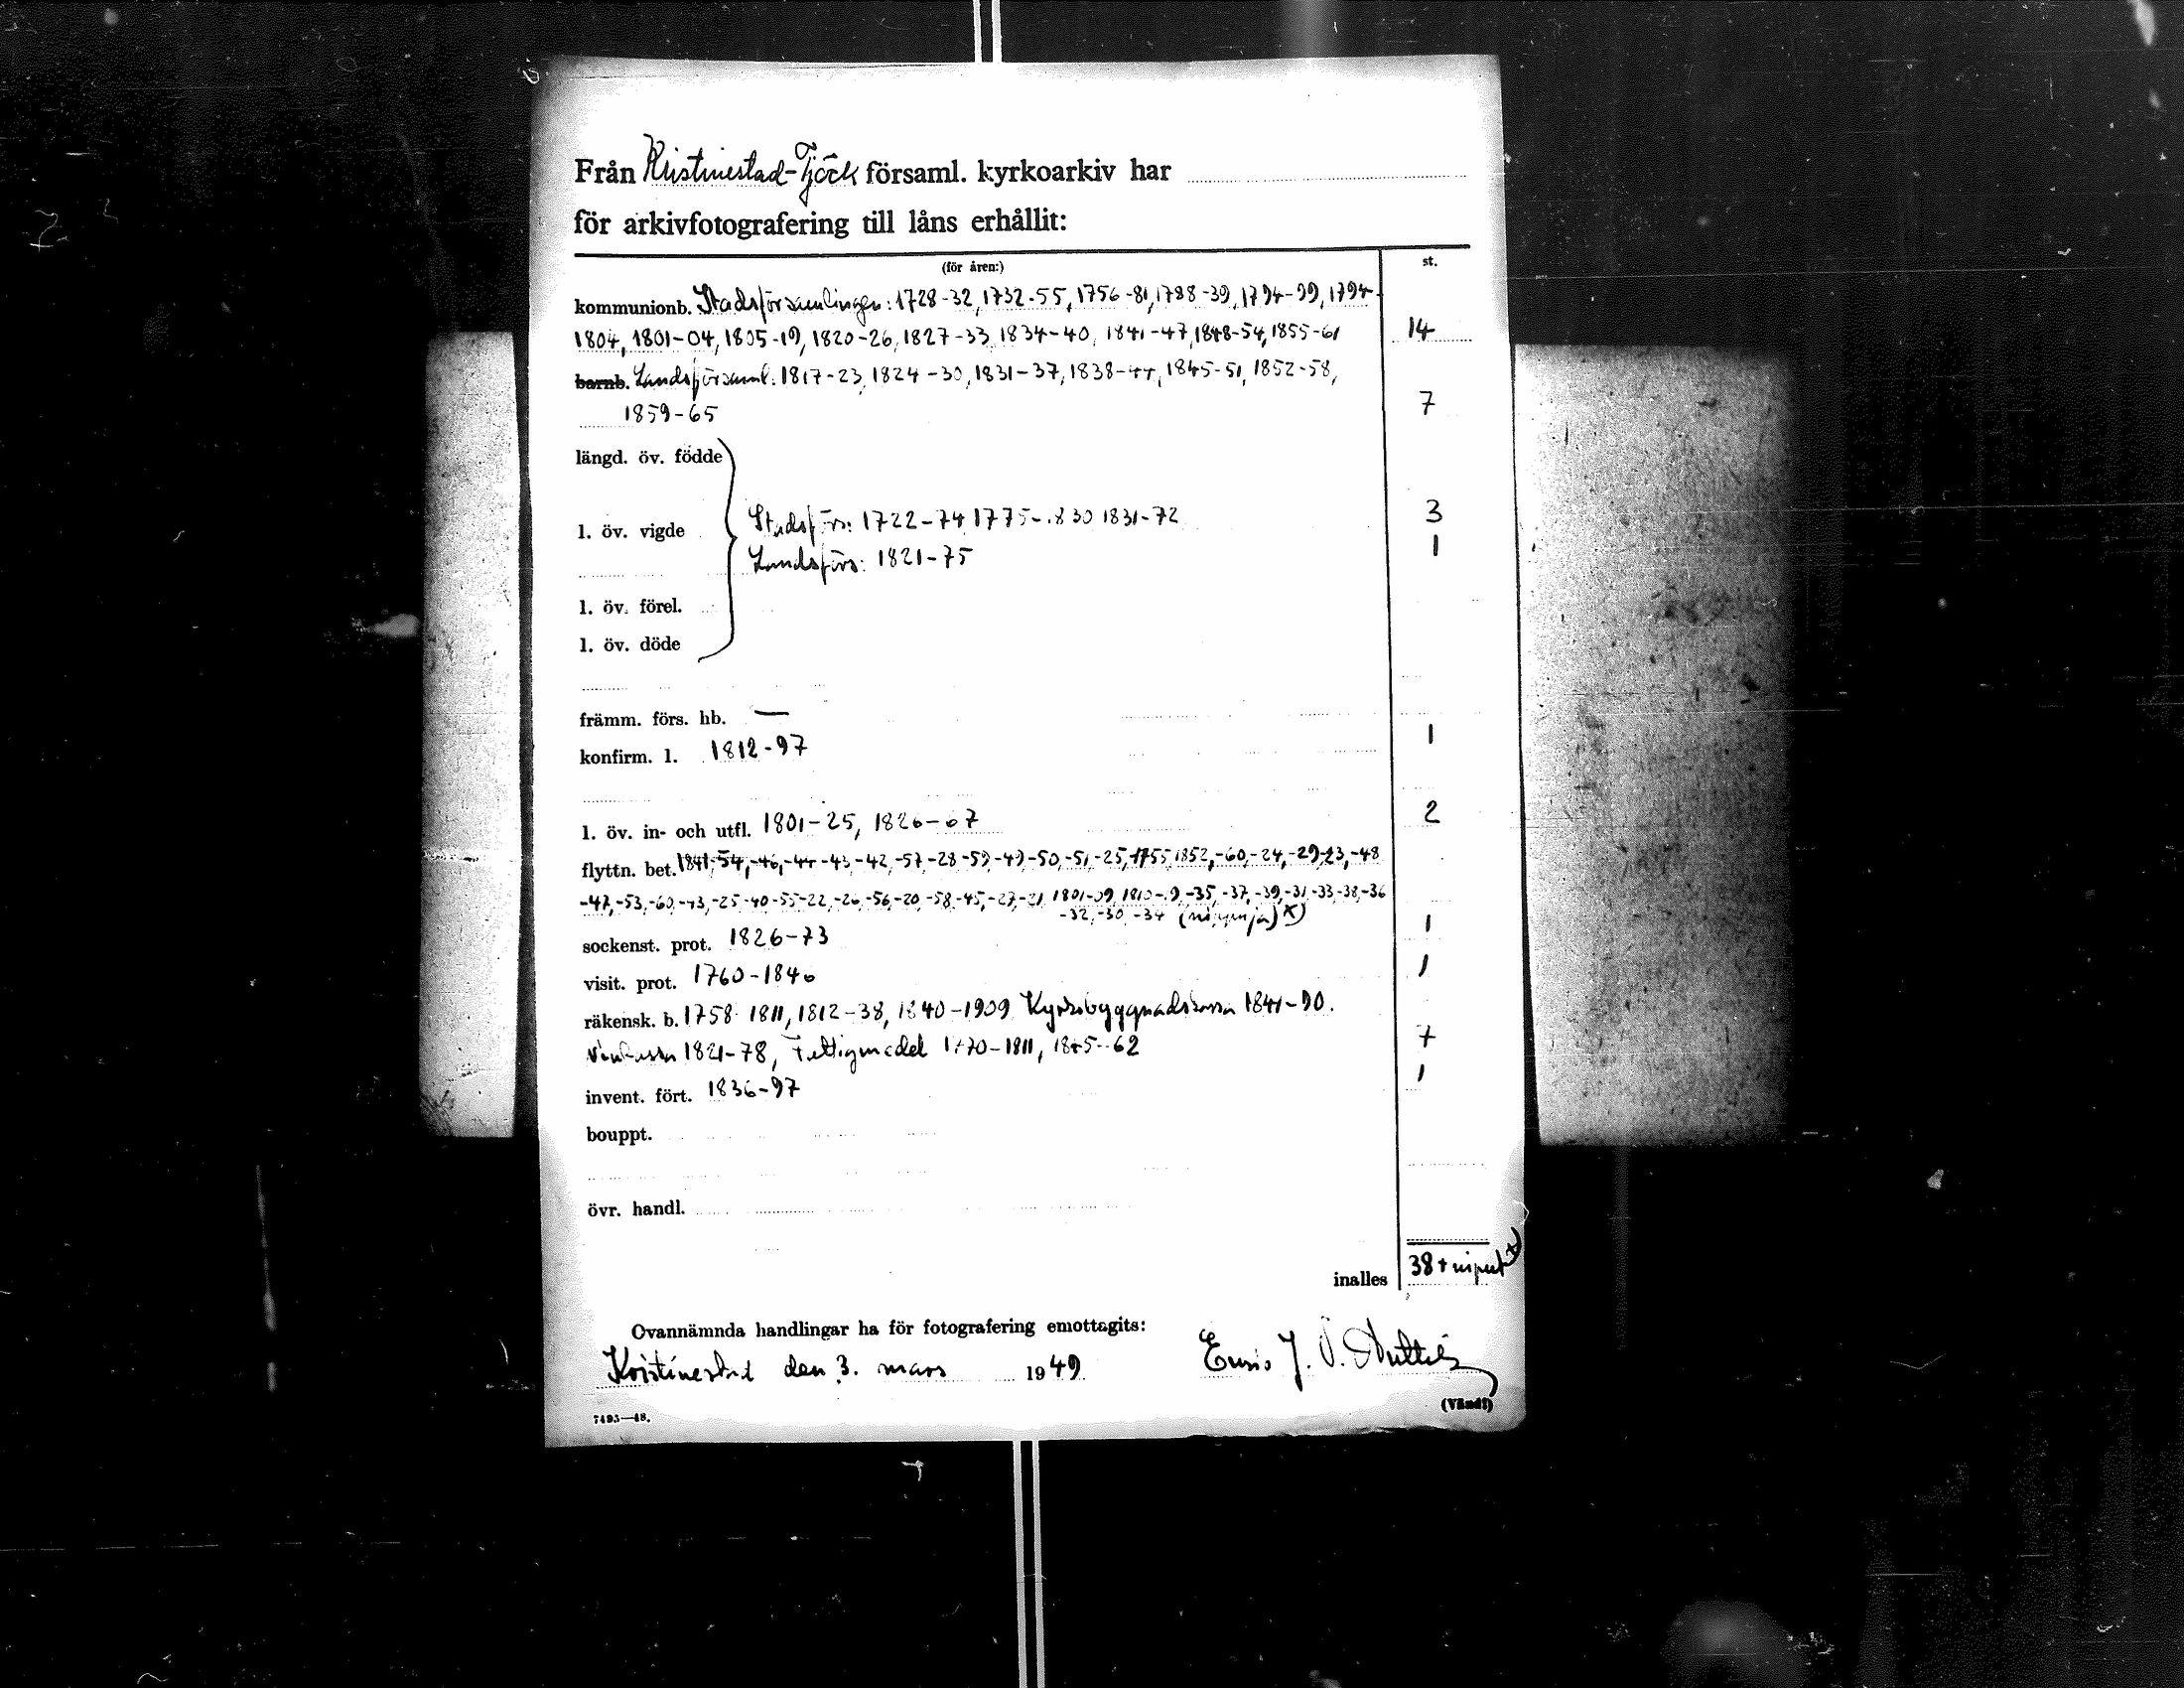 Från Kristinestad-Tjöck församl. kyrkoarkiv har
för arkivfotografering till låns erhållit:
(för åren:) st.
kommunionb. Stadsförsamlingen: 1728-32, 1732-55, 1756-81, 1788-39, 1794-99, 1794-
1804, 1801-04, 1805-19, 1820-26, 1827-33, 1834-40, 1841-47, 1848-54, 1855-61 14
barnb. Landsförsaml: 1817-23, 1824-30, 1831-37, 1838-44, 1845-51, 1852-58,
1859-65 7
längd. öv. födde
l. öv. vigde Stadsförs: 1722-74 1775-1830 1831-72 3
Landsförs: 1821-75 1
l. öv. förel.
l. öv. döde
främm. förs. hb. —
konfirm. l. 1812-97 1
l. öv. in- och utfl. 1801-25, 1826-67 2
flyttn. bet. 1841,-54,-46,-44-43,-42,-57,-28-59,-49,-50,-51,-25,1755, 1852,-60,-24,-29-23,-48
-47,-53,-60,-43,-25,-40-55-22,-26,-56,-20,-58,-45,-27,-21, 1801-09, 1810-19,-35,-37,-39,-31,-33,-38,-36
-32,-30,-34
sockenst. prot. 1826-73 1
visit. prot. 1760-1840 1
räkensk. b. 1758-1811, 1812-38, 1840-1909 Kyrkobyggnadskassa 1841-90.
1821-78, Fattigmedel 1770-1811, 1845-62 7
invent. fört. 1836-97 1
bouppt.
övr. handl.
inalles 38 +
Ovannämnda handlingar ha för fotografering emottagits:
Kristinestad den 3. mars 1949
(Vänd!)
7493—48.